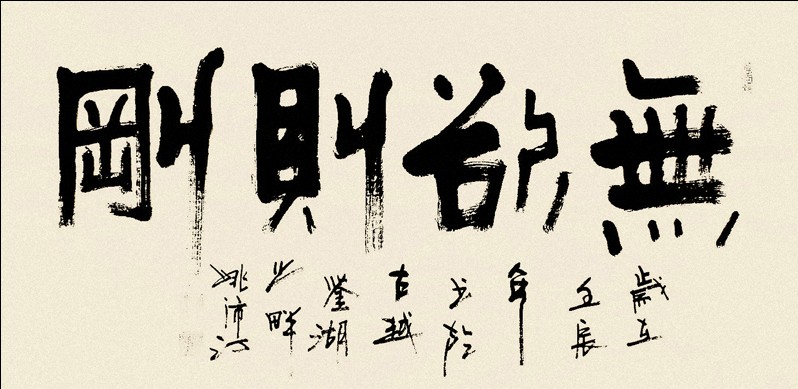 無欲則剛
歲在
壬辰
年
书於
古越
鑒湖
之畔
姚沛